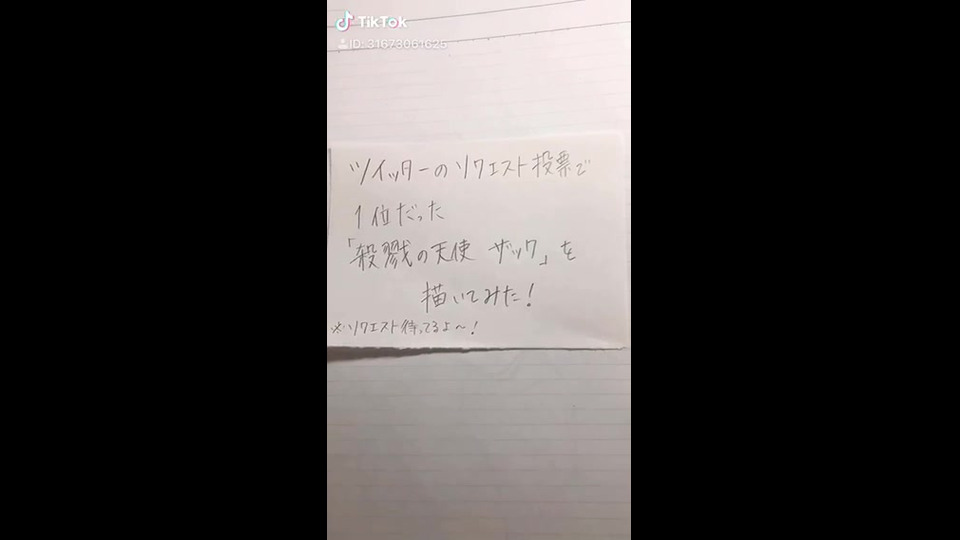 TikTok
ID: 31673061625
ツイッターのリクエスト投票で
1位だった
「殺戮の天使 ザック」を
描いてみた!
※リクエスト待ってるよ〜!